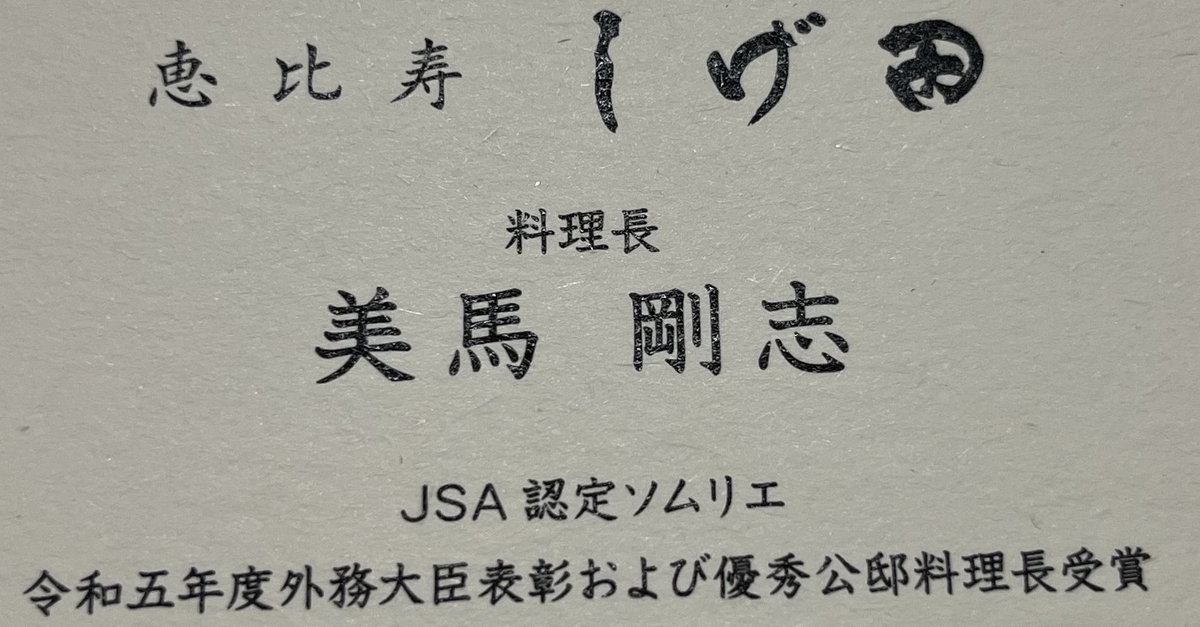 恵比寿 しげゐ
料理長
美馬 剛志
JSA 認定ソムリエ
令和五年度外務大臣表彰および優秀公邸料理長受賞